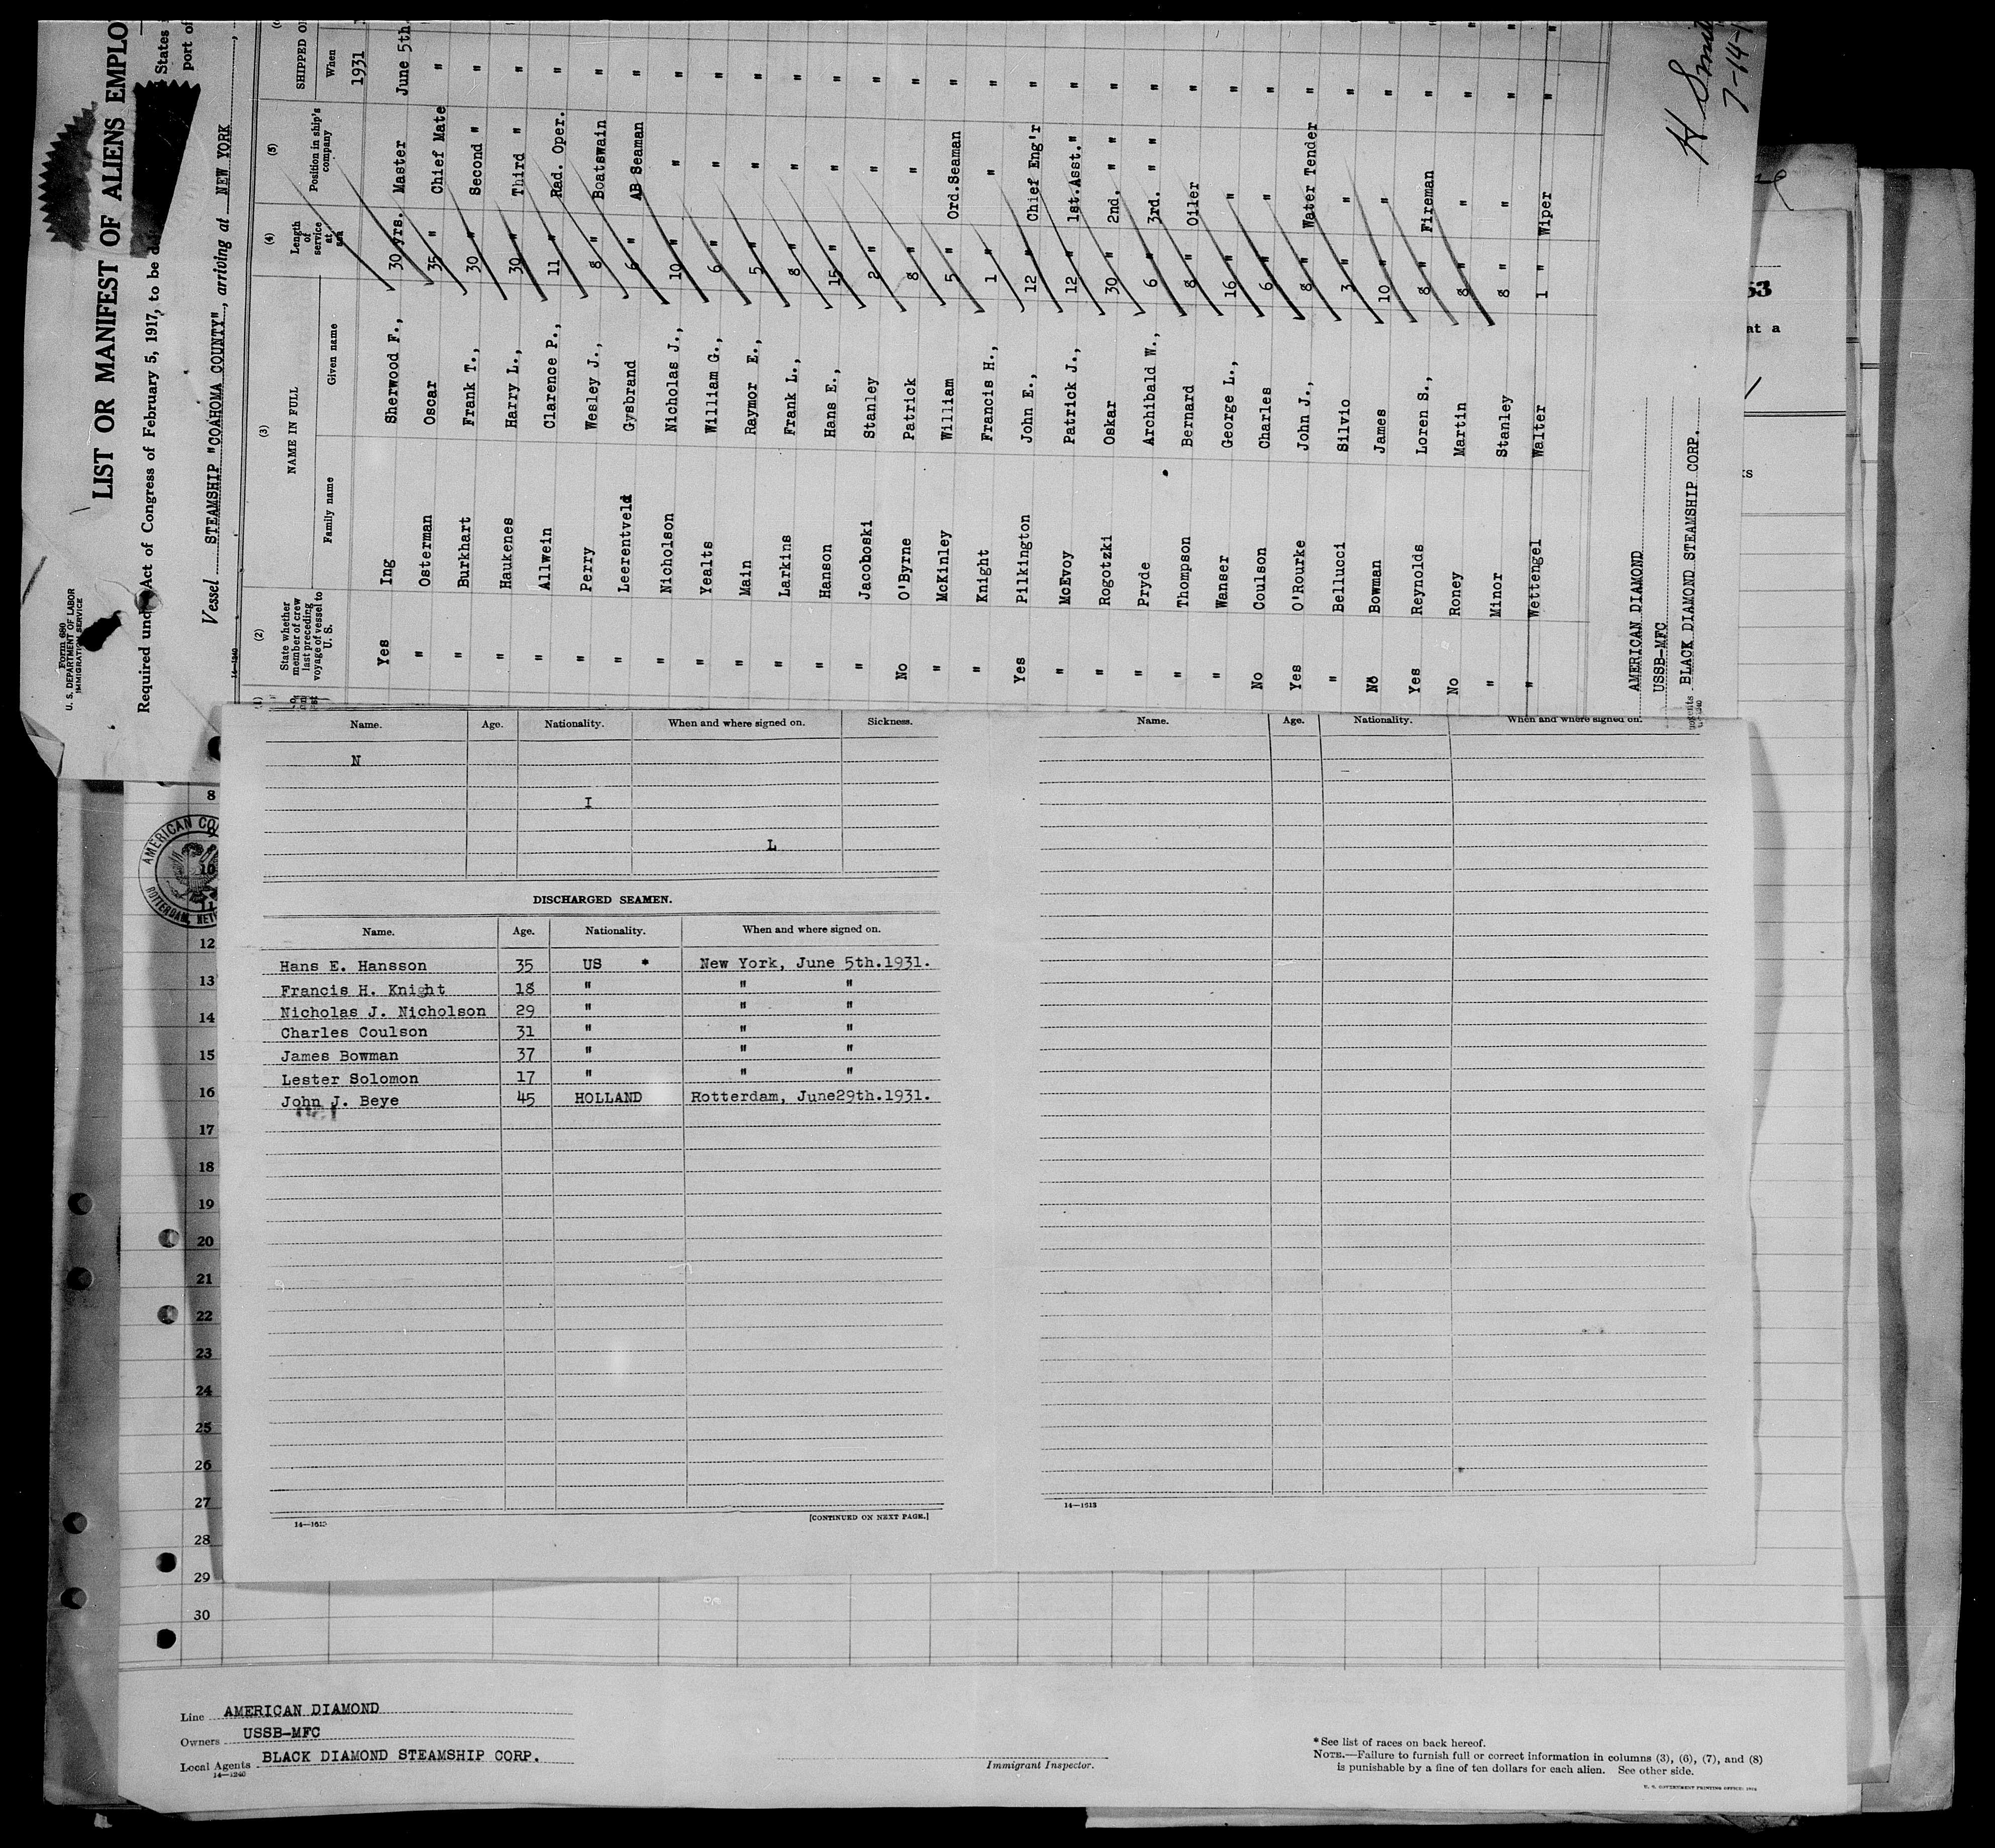 Form 680
U. S. DEPARTMENT OF LABOR
IMMIGRATION SERVICE
LIST OR MANIFEST OF ALIENS EMPLO
Required und Act of Congress of February 5, 1917, to be
States
port of
Vessel STEAMSHIP "COAHOMA COUNTY", arriving at NEW YORK
14-1240
(2) (3) (4) (5)
State whether member of crew last preceding voyage of vessel to U. S.
NAME IN FULL
Family name Given name
Length of service at sea
Position in ship's company
SHIPPED O
When
1931
Yes Ing Sherwood F., 30 yrs. Master June 5th.
" Osterman Oscar 35 " Chief Mate "
" Burkhart Frank T., 30 " Second " "
" Haukenes Harry L., 30 " Third " "
" Allwein Clarence P., 11 " Rad. Oper. "
" Perry Wesley J., 8 " Boatswain "
" Leerentveld Gysbrand 6 " AB Seaman "
" Nicholson Nicholas J., 10 " " "
" Yealts William G., 6 " " "
" Main Raymor E., 5 " " "
" Larkins Frank L., 8 " " "
" Hanson Hans E., 15 " " "
" Jacoboski Stanley 2 " " "
No O'Byrne Patrick 8 " " "
" McKinley William 5 " Ord.Seaman "
" Knight Francis H., 1 " " "
Yes Pilkington John E., 12 " Chief Eng'r "
" McEvoy Patrick J., 12 " 1st.Asst." "
" Rogotzki Oskar 30 " 2nd. " " "
" Pryde Archibald W., 6 " 3rd. " " "
" Thompson Bernard 8 " Oiler "
" Wanser George L., 16 " " "
No Coulson Charles 6 " " "
Yes O'Rourke John J., 8 " Water Tender "
" Bellucci Silvio 3 " " "
No Bowman James 10 " " "
Yes Reynolds Loren S., 8 " Fireman "
No Roney Martin 8 " " "
" Minor Stanley 8 " " "
" Wettengel Walter 1 " Wiper "
AMERICAN DIAMOND
USSB-MFC
BLACK DIAMOND STEAMSHIP CORP.
7-14-
53
at a
Name. Age. Nationality. When and where signed on. Sickness.
N
I
L
DISCHARGED SEAMEN.
Name. Age. Nationality. When and where signed on.
Hans E. Hansson 35 US * New York, June 5th.1931.
Francis H. Knight 18 " " "
Nicholas J. Nicholson 29 " " "
Charles Coulson 31 " " "
James Bowman 37 " " "
Lester Solomon 17 " " "
John J. Beye 45 HOLLAND Rotterdam, June29th.1931.
14—1613
[CONTINUED ON NEXT PAGE.]
Name. Age. Nationality. When and where signed on.
14—1613
AMERICAN CO
ROTTERDAM, NET
8
10
11
12
13
14
15
16
17
18
19
20
21
22
23
24
25
26
27
28
29
30
Line AMERICAN DIAMOND
Owners USSB-MFC
Local Agents BLACK DIAMOND STEAMSHIP CORP.
14—1240
Immigrant Inspector.
*See list of races on back hereof.
NOTE.—Failure to furnish full or correct information in columns (3), (6), (7), and (8)
is punishable by a fine of ten dollars for each alien. See other side.